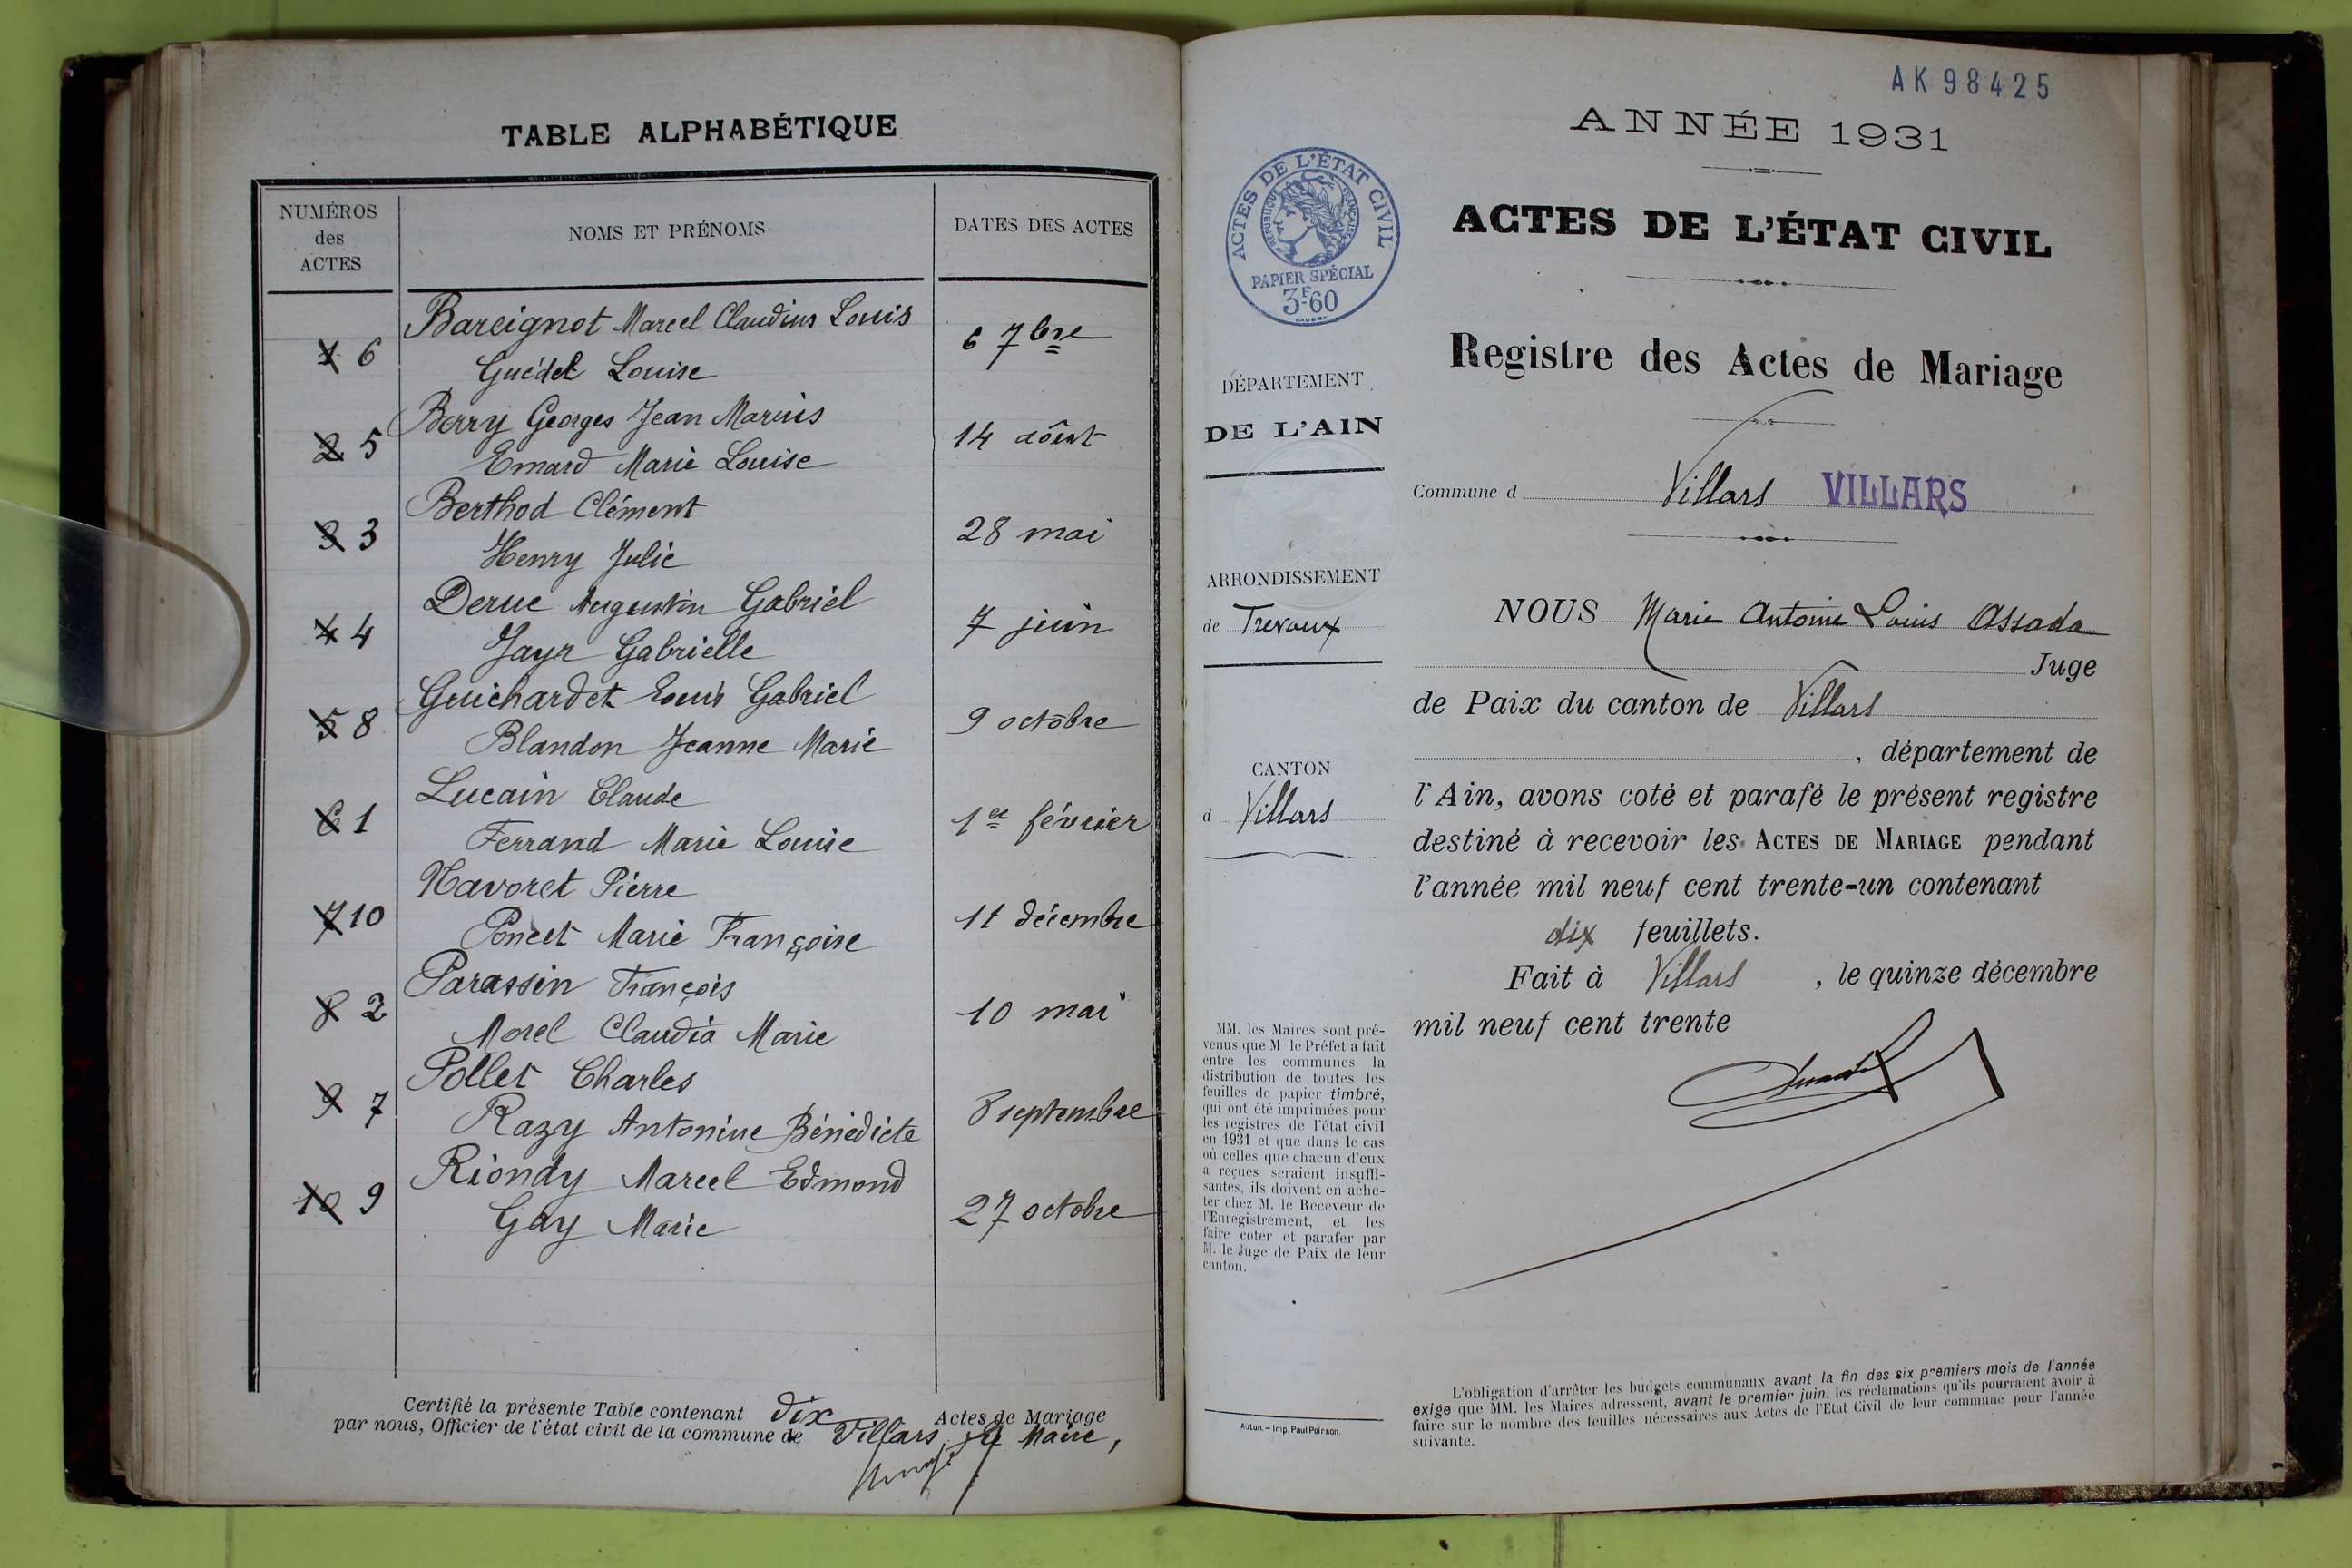 TABLE ALPHABÉTIQUE
NUMÉROS
des
ACTES
NOMS ET PRÉNOMS
DATES DES ACTES
Bareignot Marcel Claudius Louis
1 6
6 7bre
Guédet Louise
Berry Georges Jean Marius
2 5
14 août
Emard Marie Louise
Berthod Clément
3 3
28 mai
Henry Julie
Derue Augustin Gabriel
4 4
7 juin
Jayr Gabrielle
Guichardet Louis Gabriel
5 8
9 octobre
Blandon Jeanne Marie
Lucain Claude
6 1
1er février
Ferrand Marie Louise
Navoret Pierre
7 10
11 décembre
Poncet Marie Françoise
Parassin François
8 2
10 mai
Morel Claudia Marie
Pollet Charles
9 7
8 septembre
Razy Antonine Bénédicte
Riondy Marcel Edmond
10 9
27 octobre
Gay Marie
Certifié la présente Table contenant dix Actes de Mariage
par nous, Officier de l'état civil de la commune de Villars, Le Maire,
AK98425
ANNÉE 1931
ACTES DE L'ÉTAT CIVIL
RÉPUBLIQUE FRANÇAISE
PAPIER SPÉCIAL
3F60
ACTES DE L'ÉTAT CIVIL
Registre des Actes de Mariage
DÉPARTEMENT
DE L'AIN
Commune d Villars VILLARS
ARRONDISSEMENT
de Trevoux
CANTON
d Villars
NOUS Marie Antoine Louis Assada
Juge
de Paix du canton de Villars
, département de
l'Ain, avons coté et parafé le présent registre
destiné à recevoir les ACTES DE MARIAGE pendant
l'année mil neuf cent trente-un contenant
dix feuillets.
Fait à Villars , le quinze décembre
mil neuf cent trente
MM. les Maires sont pré-
venus que M le Préfet a fait
entre les communes la
distribution de toutes les
feuilles de papier timbré,
qui ont été imprimées pour
les registres de l'état civil
en 1931 et que dans le cas
où celles que chacun d'eux
a reçues seraient insuffi-
santes, ils doivent en ache-
ter chez M. le Receveur de
l'Enregistrement, et les
faire coter et parafer par
M. le Juge de Paix de leur
canton.
Autun. – Imp. Paul Poirson.
L'obligation d'arrêter les budgets communaux avant la fin des six premiers mois de l'année
exige que MM. les Maires adressent, avant le premier juin, les réclamations qu'ils pourraient avoir à
faire sur le nombre des feuilles nécessaires aux Actes de l'Etat Civil de leur commune pour l'année
suivante.